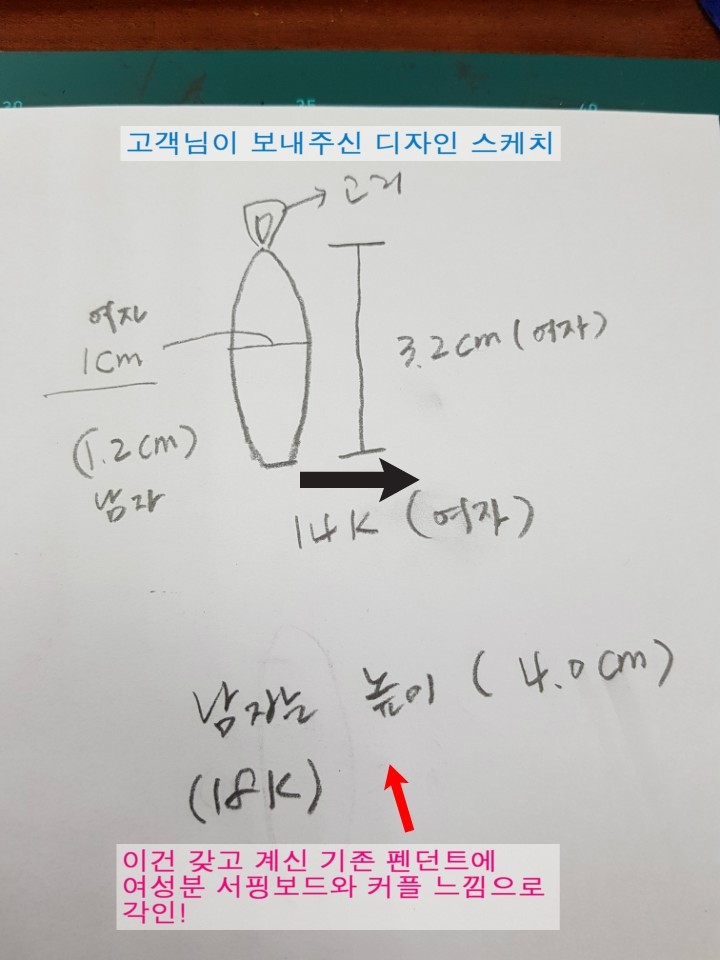 30
35
40
고객님이 보내주신 디자인 스케치
고리
여자
1cm
3.2cm (여자)
(1.2cm)
남자
14K (여자)
남자는 높이 (4.0cm)
(18K)
이건 갖고 계신 기존 펜던트에
여성분 서핑보드와 커플 느낌으로
각인!